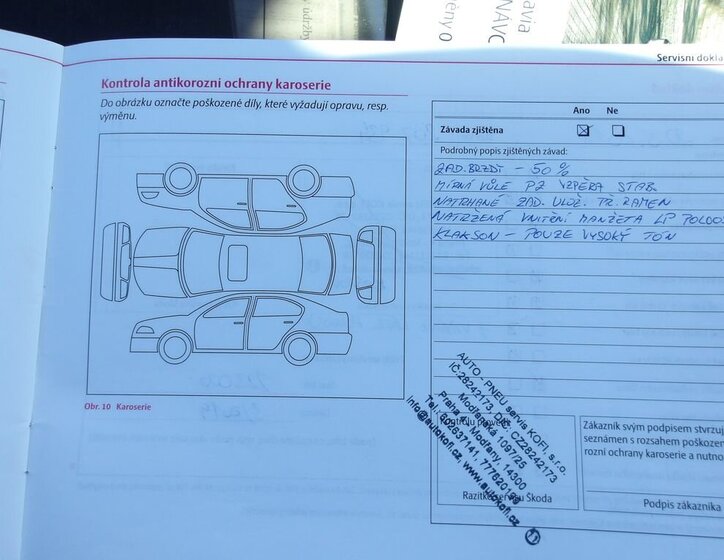 avia
NAVC
ěny o
údržb
Servisní dokla
Kontrola antikorozní ochrany karoserie
Do obrázku označte poškozené díly, které vyžadují opravu, resp.
výměnu.
Ano Ne
Závada zjištěna
Podrobný popis zjištěných závad:
ZAD. BRZDY - 50 %
MÍRNÁ VŮLE PZ VZPĚRA STAB.
NATRHANÉ ZAD. ULOŽ. PŘ. RAMEN
NATRŽENÁ VNITŘNÍ MANŽETA LP POLOOS
KLAKSON - POUZE VYSOKÝ TÓN
Obr. 10 Karoserie
AUTO - PNEU servis KOFI, s.r.o.
IČ:28242173, DIČ: CZ28242173
Modřanská 1097/25
Praha 4, Modřany, 14300
Tel.: 602637141, 777620199
info@autokofi.cz, www.autokofi.cz
Razítko servisu Škoda
Zákazník svým podpisem stvrzuj
seznámen s rozsahem poškozen
rozní ochrany karoserie a nutno
Podpis zákazníka